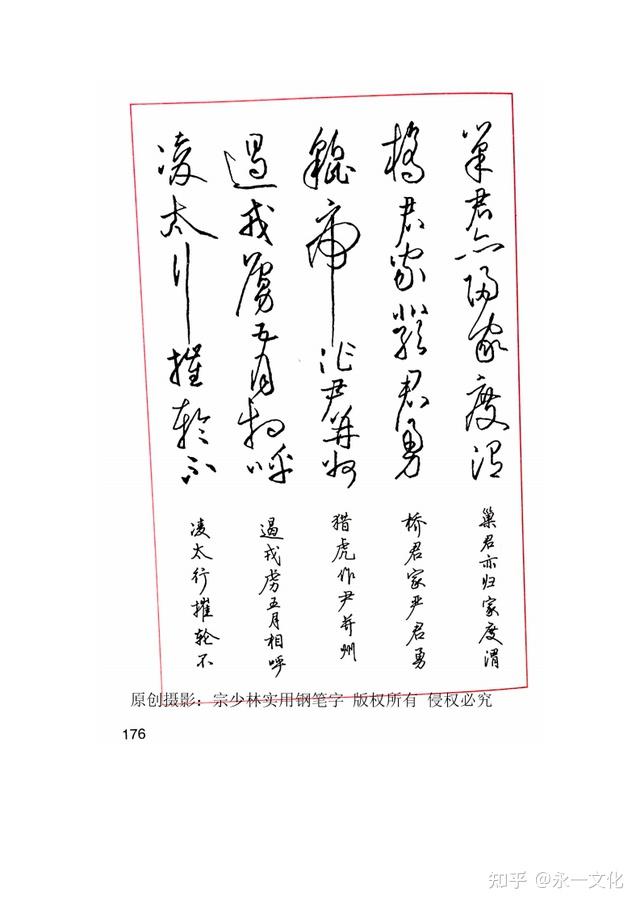 巢君亦歸家度渭
橋君家嚴君勇
貔虎作尹并州
遏戎虜五月相呼
凌太行摧輪不
巢君亦归家度渭
桥君家严君勇
猎虎作尹并州
遏戎虏五月相呼
凌太行摧轮不
原创摄影：宗少林实用钢笔字 版权所有 侵权必究
176
知乎 @永一文化